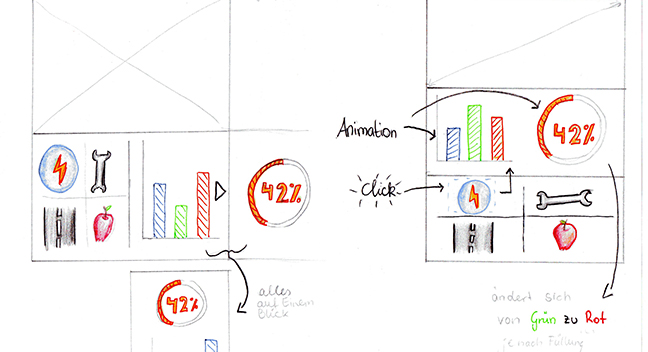 42%
alles
auf Einem
Blick
42%
Animation
42%
Click
ändert sich
von Grün zu Rot
je nach Füllung